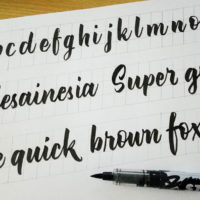 b c d e f g h i j k l m n o
esainesia Super g
e quick brown fox